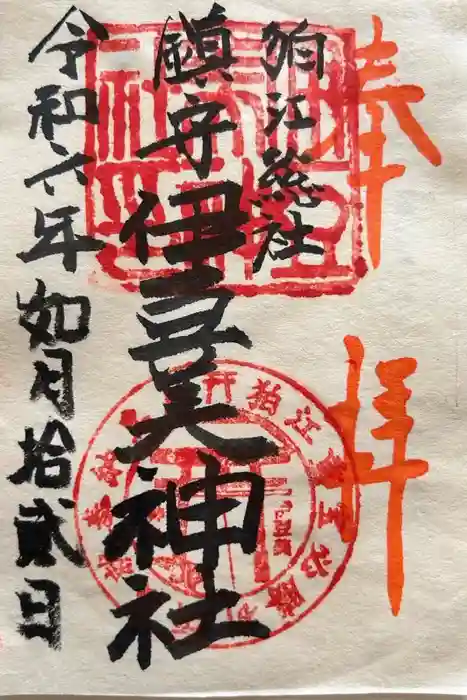 奉拝
狛江総社
鎮守伊豆美神社
令和六年如月拾弐日